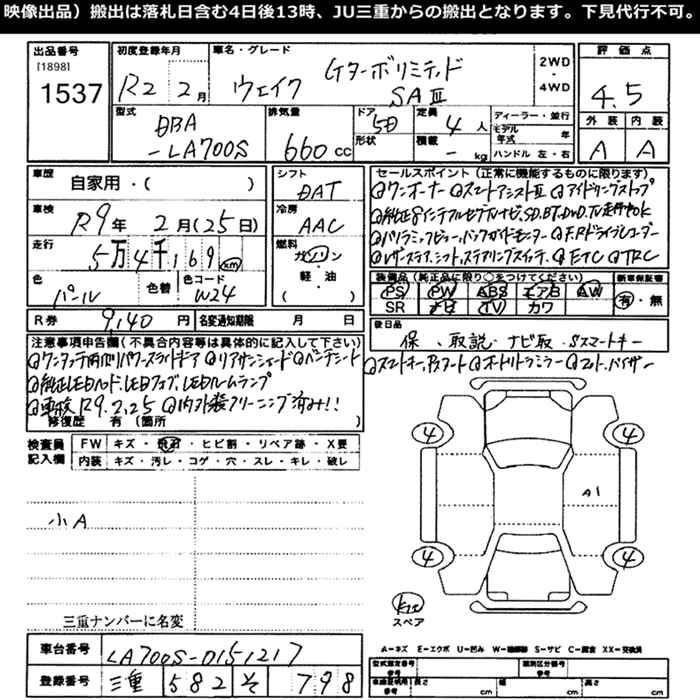 映像出品）搬出は落札日含む4日後13時、JU三重からの搬出となります。下見代行不可。
出品番号
[1898]
1537
初度登録年月
R2 2月
車名・グレード
ウェイク Gターボリミテッド SAⅢ
2WD・4WD
評価点
4.5
外装 内装
A A
型式
DBA-LA700S
排気量
660cc
ドア形状
5D
定員 4人
積載 - kg
ディーラー・並行
モデル年式 年
ハンドル 左・右
車歴
自家用・( )
シフト
DAT
車検
R9年 2月(25日)
冷房
AAC
走行
5万4千169km
燃料
ガソリン・軽油・( )
色
パール
色替
色コード
W24
セールスポイント(正常に機能するものに限ります)
◎ワンオーナー ◎スマートアシストⅢ ◎アイドリングストップ
◎純正8インチフルセグナビ、SD.BT.DVD.TV走行中OK
◎パノラミックビュー、バックガイドモニター ◎F.Rドライブレコーダー
◎レザーステア,シフト、ステアリングスイッチ ◎ETC ◎TRC
装備品(純正品に限り○をつけてください)
PS PW ABS エアB AW
SR ナビ TV カワ
新車保証書
有・無
R券 9,140円
名変通知期限 月 日
後日品
保、取説、ナビ取、Sスマートキー
注意事項申告欄(不具合内容等は具体的に記入して下さい)
◎ワンタッチ両側パワースライドドア ◎リアサンシェード ◎ベンチシート ◎スマートキー,Pスタート ◎オートリトラミラー ◎マット、バイザー
◎純正LEDヘッド、LEDフォグ、LEDルームランプ
◎車検 R9.2.25 ◎内外装クリーニング済み!!
修復歴 有(箇所
検査員記入欄
FW キズ・飛石・ヒビ割・リペア跡・X要
内装 キズ・汚レ・コゲ・穴・スレ・キレ・破レ
小A
三重ナンバーに名変
4
4
A1
4
4
スペア
A＝キズ E＝エクボ U＝凹み W＝補修跡 S＝サビ C＝腐食 XX＝交換済
車台番号
LA700S-0151217
登録番号
三重 582 そ 798
型式指定番号
類別区分番号
車検証明用参考
長さ cm 幅 cm 高さ cm